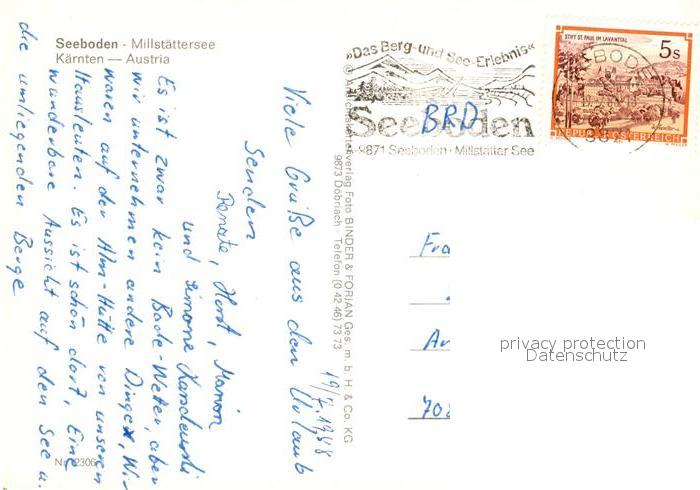 Seeboden - Millstättersee
Kärnten — Austria
»Das Berg-und See-Erlebnis«
Seeboden
9871 Seeboden · Millstätter See
STIFT ST. PAUL IM LAVANTTAL
5s
REPUBLIK ÖSTERREICH
BRD
19/7.1988
Viele Grüße aus dem Urlaub
Senden
Renate, Horst, Marion
und Simone
Es ist zwar kein Bade-Wetter, aber
wir unternehmen andere Dinge, Wir
waren auf der Alm-Hütte von unseren
Hausleuten. Es ist schön dort, Eine
wunderbare Aussicht auf den See u.
die umliegenden Berge
Verlag Foto BINDER & FORJAN Ges. m. b. H. & Co. KG
9873 Döbriach - Telefon (0 42 46) 73 73
Fra
An
708
privacy protection
Datenschutz